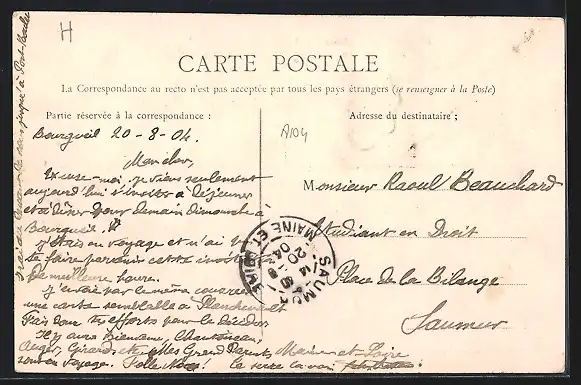 H
CARTE POSTALE
La Correspondance au recto n'est pas acceptée par tous les pays étrangers (se renseigner à la Poste)
Partie réservée à la correspondance :
Adresse du destinataire ;
A104
Bourgueil 20-8-04.
Mon cher,
Excuse-moi, je viens seulement
aujourd'hui t'inviter à déjeuner
et à dîner pour demain Dimanche à
Bourgueil.
J'étais en voyage et n'ai pu
te faire parvenir cette invitation
de meilleure heure.
J'envoie par le même courrier
une carte semblable à
Fais donc tes efforts pour le décider
Il y aura Bienvenu,
Auger, Girard, etc. Mes Grand Parents
sont en voyage.
Monsieur Raoul Beauchard
Etudiant en Droit
Place de la Bilange
Saumur
Maine-et-Loire
SAUMUR
MAINE ET LOIRE
20 -8
04